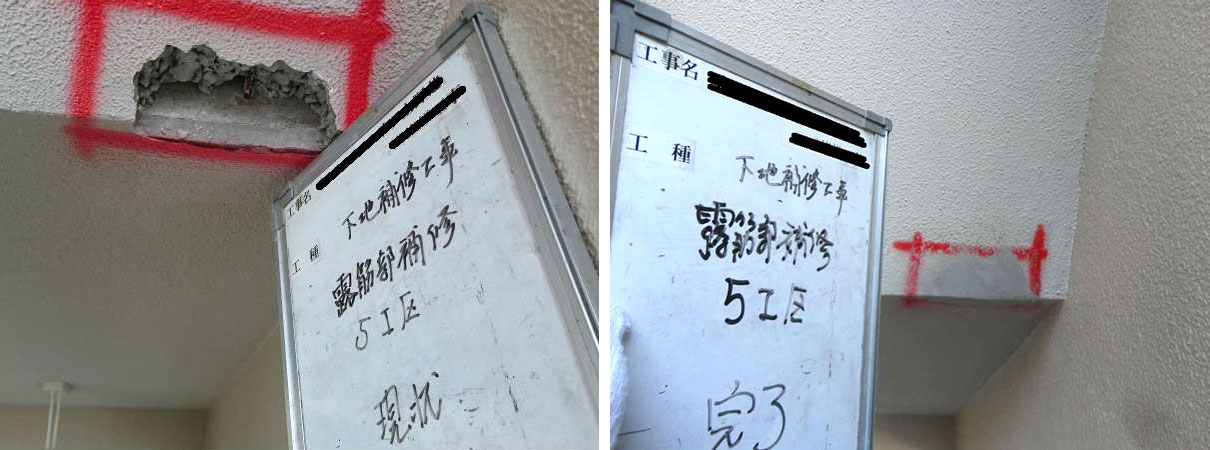 工事名
工種
下地補修工事
露筋部補修
5工区
現状
工事名
工種
下地補修工事
露筋部補修
5工区
完了